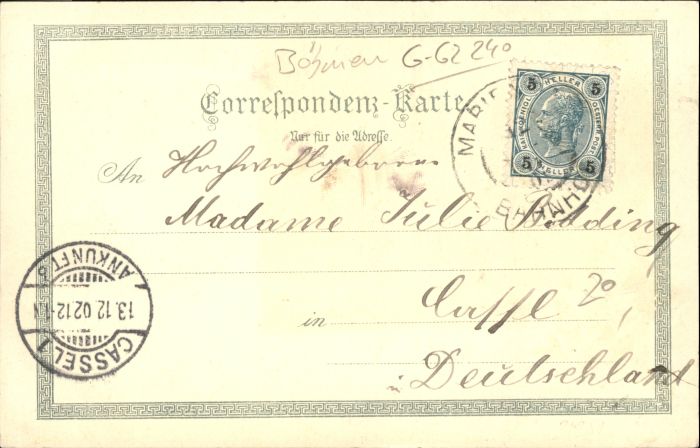 Böhmen G-62 240
Correspondenz-Karte
Nur für die Adresse.
5 HELLER 5
KAIS. KOENIGL. OESTERR. POST
5 HELLER 5
MARIE
BAHNHO
An Hochwohlgeboren
Madame Julie
in Cassel
Deutschland
CASSEL 1
13.12 02 12-1 N
ANKUNFT